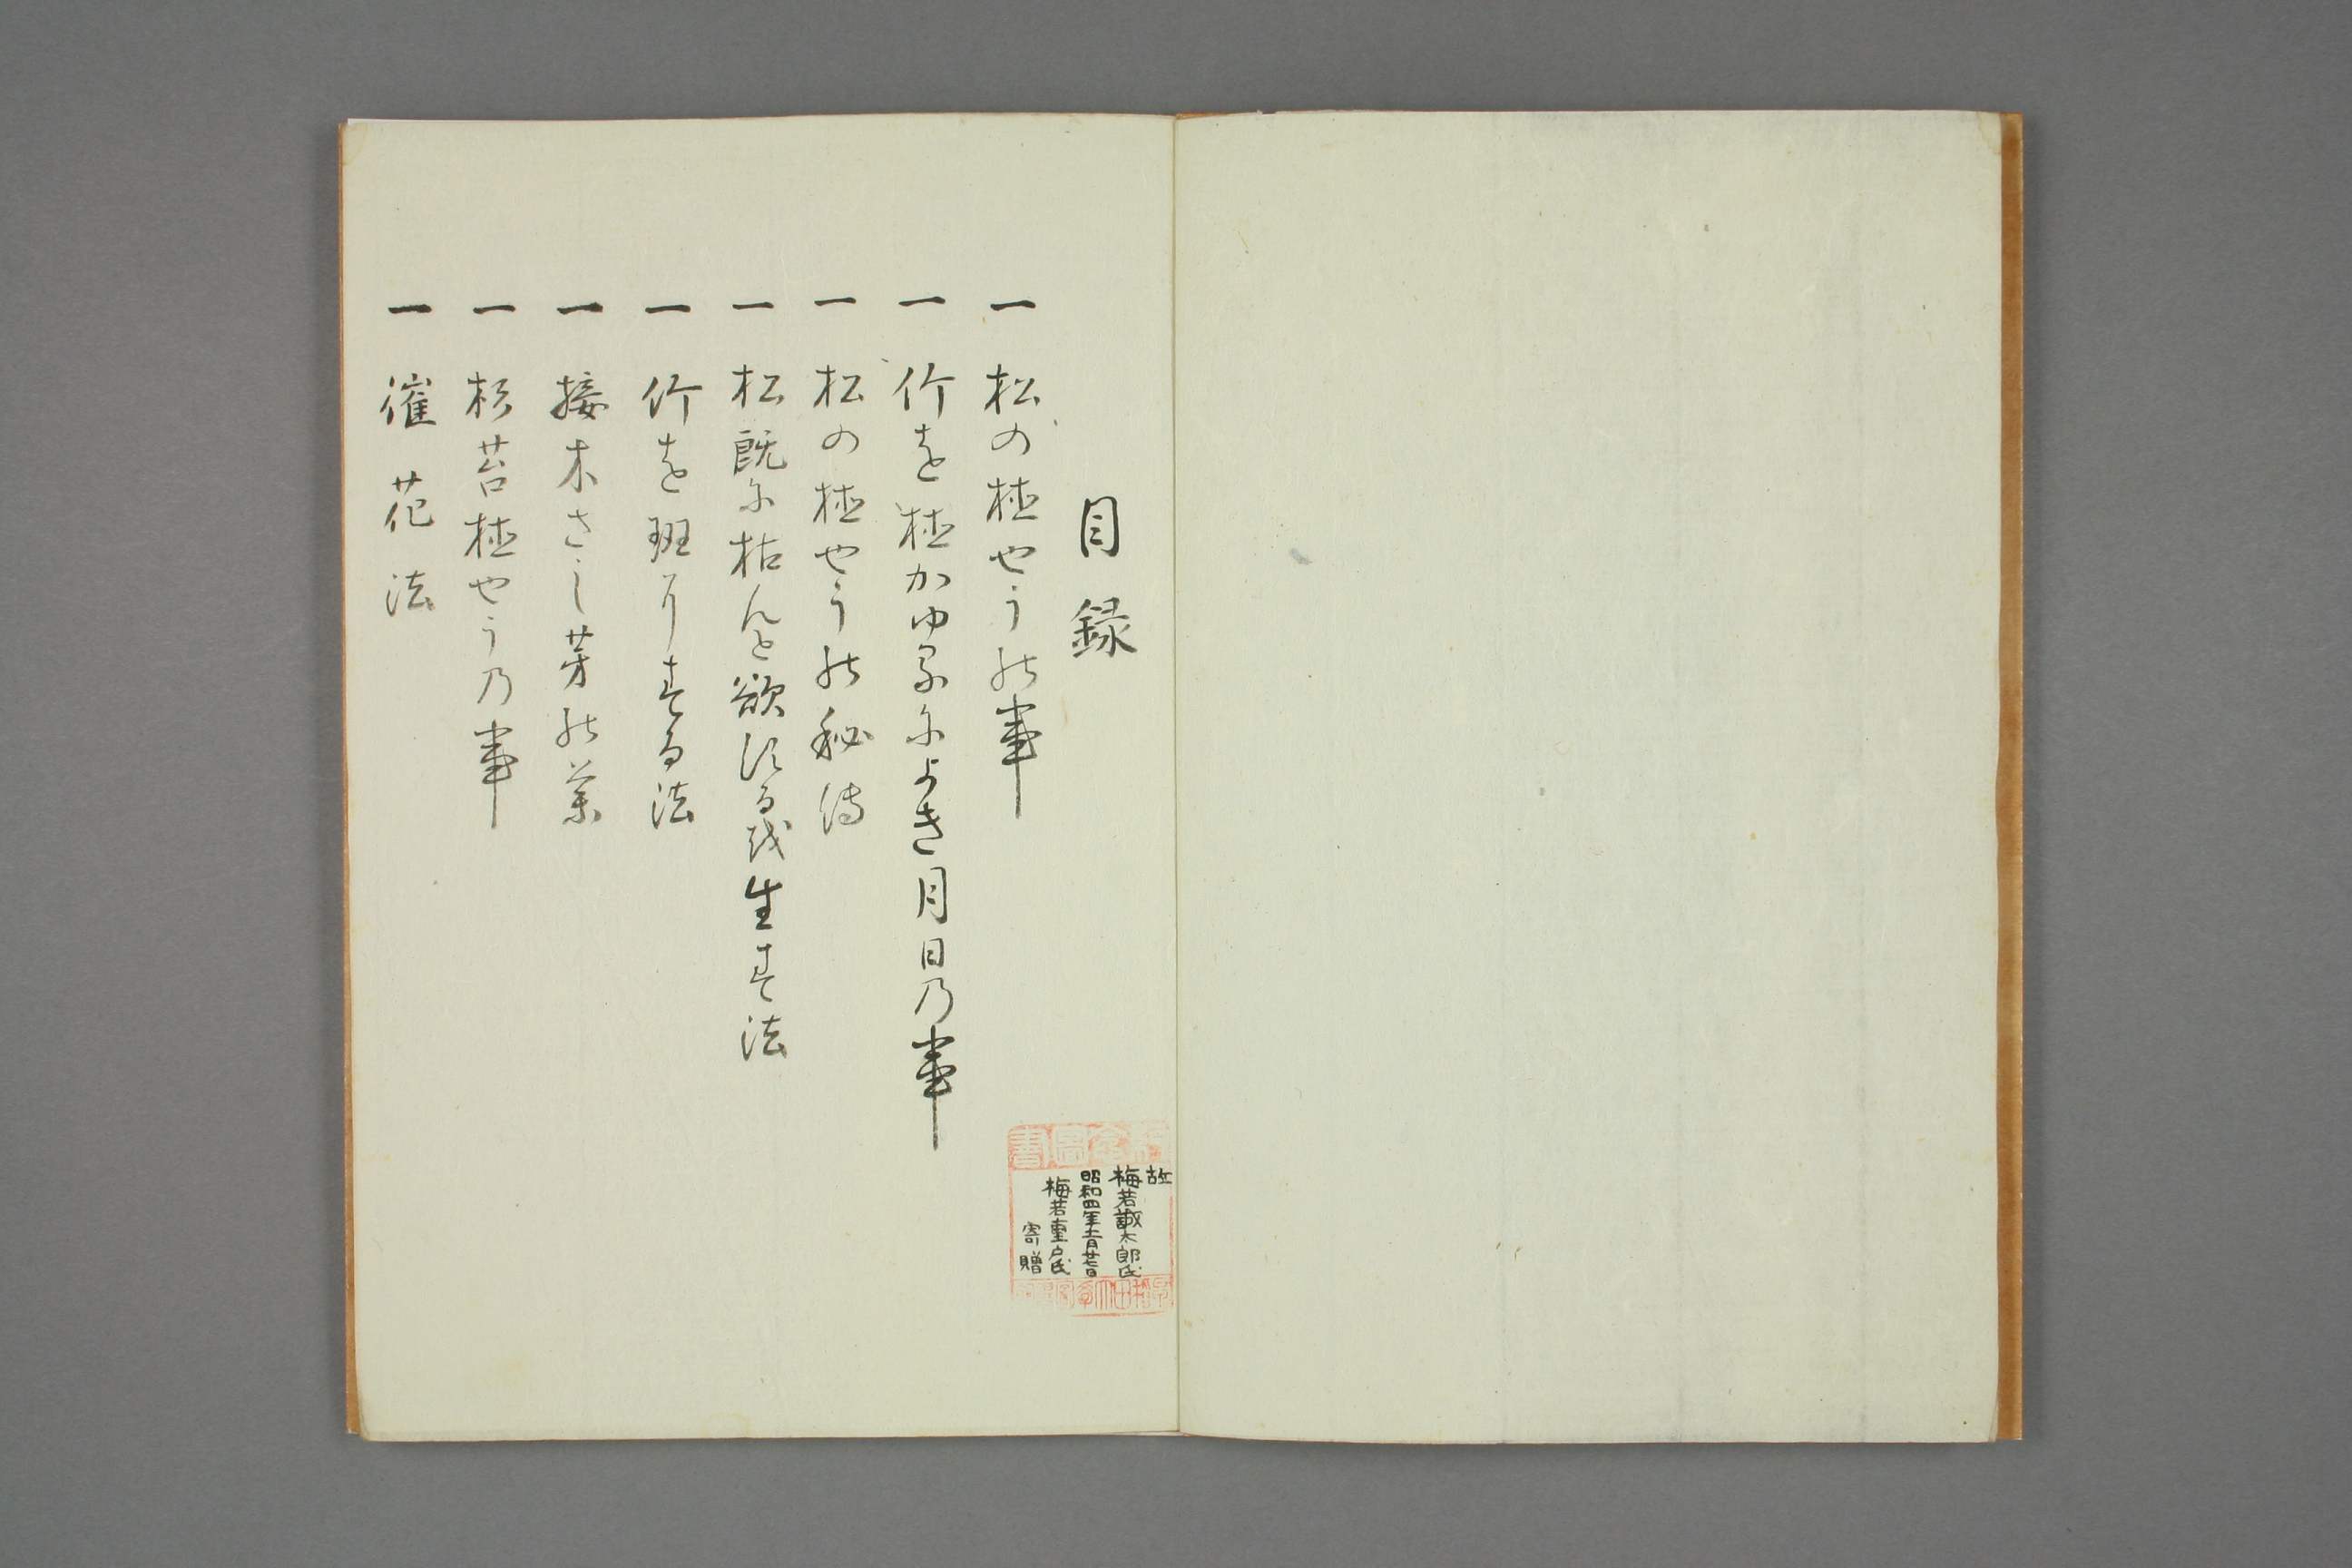 目録
一 松の植やうの事
一 竹を植かゆるによき月日乃事
一 松の植やうの秘傳
一 松既に枯んと欲するを生す法
一 竹を班にする法
一 接木さし芽の薬
一 杉苔植やう乃事
一 催花法
故
梅若誠太郎氏
昭和四年十一月廿七日
梅若重戸氏
寄贈